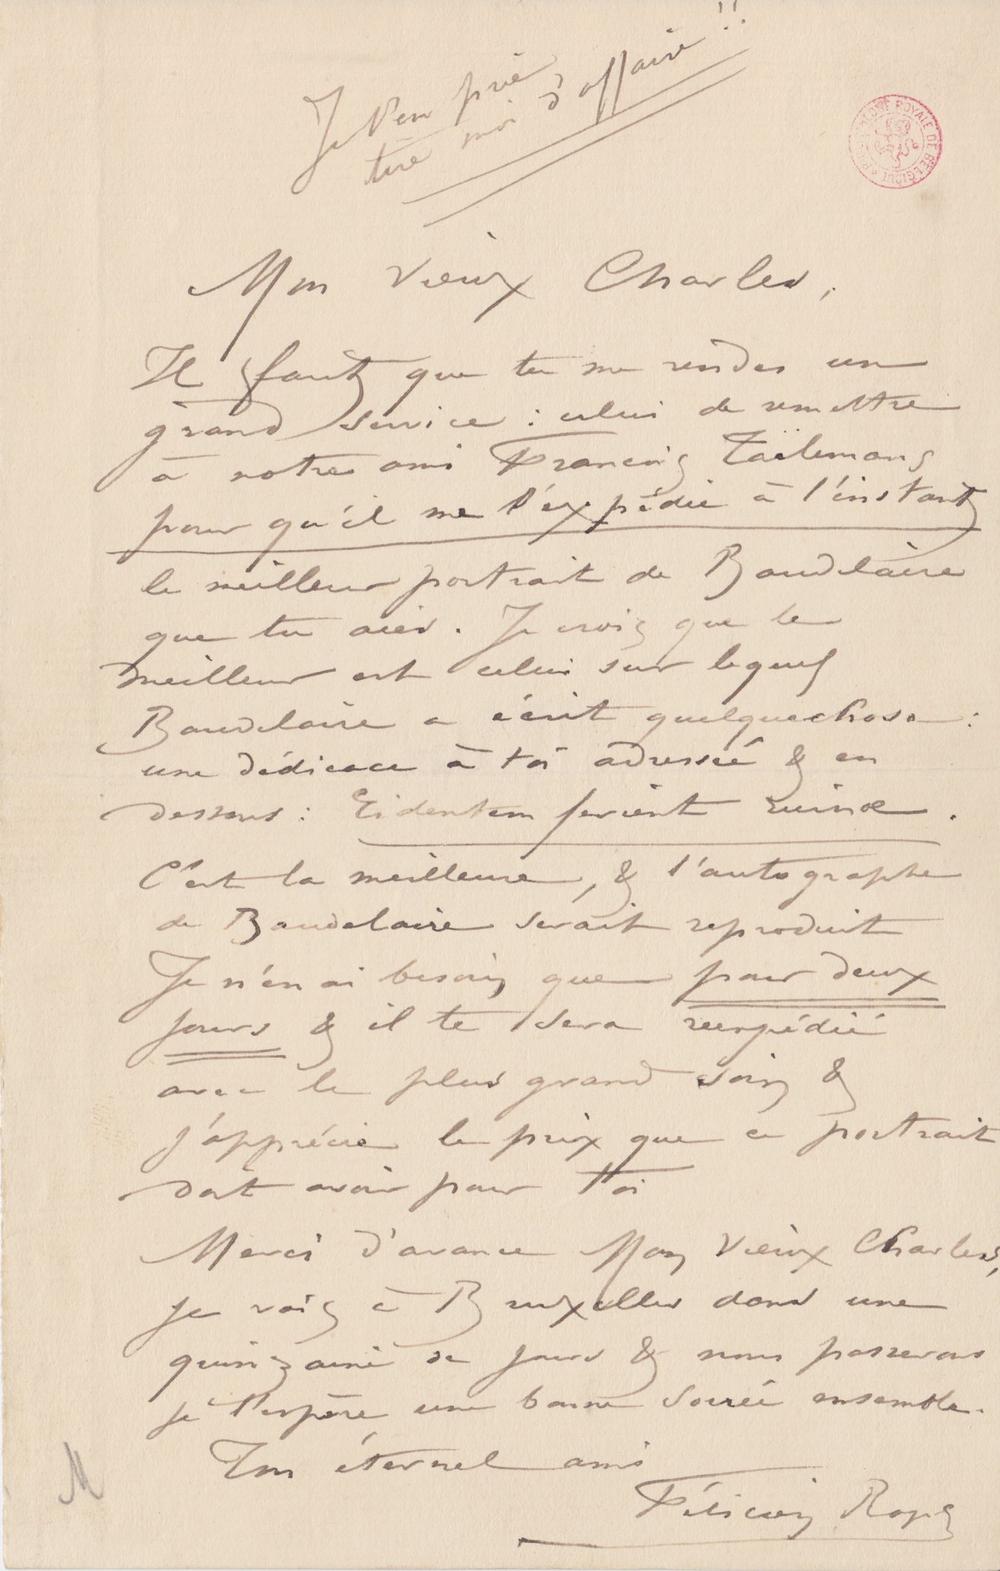 Je t'en prie
tire moi d'affaire !!
BIBLIOTHÈQUE ROYALE DE BELGIQUE
Mon Vieux Charles,
Il faut que tu me rendes un
grand service : celui de remettre
à notre ami François Taëlemans
pour qu'il me l'expédie à l'instant
le meilleur portrait de Baudelaire
que tu aies. Je crois que le
meilleur est celui sur lequel
Baudelaire a écrit quelquechose :
une dédicace à toi adressée & en
dessous : Ridentem ferient ruinæ.
C'est la meilleure, & l'autographe
de Baudelaire serait reproduit
Je n'en ai besoin que pour deux
jours & il te sera reexpédié
avec le plus grand soin &
j'apprécie le prix que ce portrait
doit avoir pour toi
Merci d'avance Mon Vieux Charles,
je vais à Bruxelles dans une
quinzaine de jours & nous passerons
je l'espère une bonne soirée ensemble.
Ton éternel ami
Félicien Rops
M